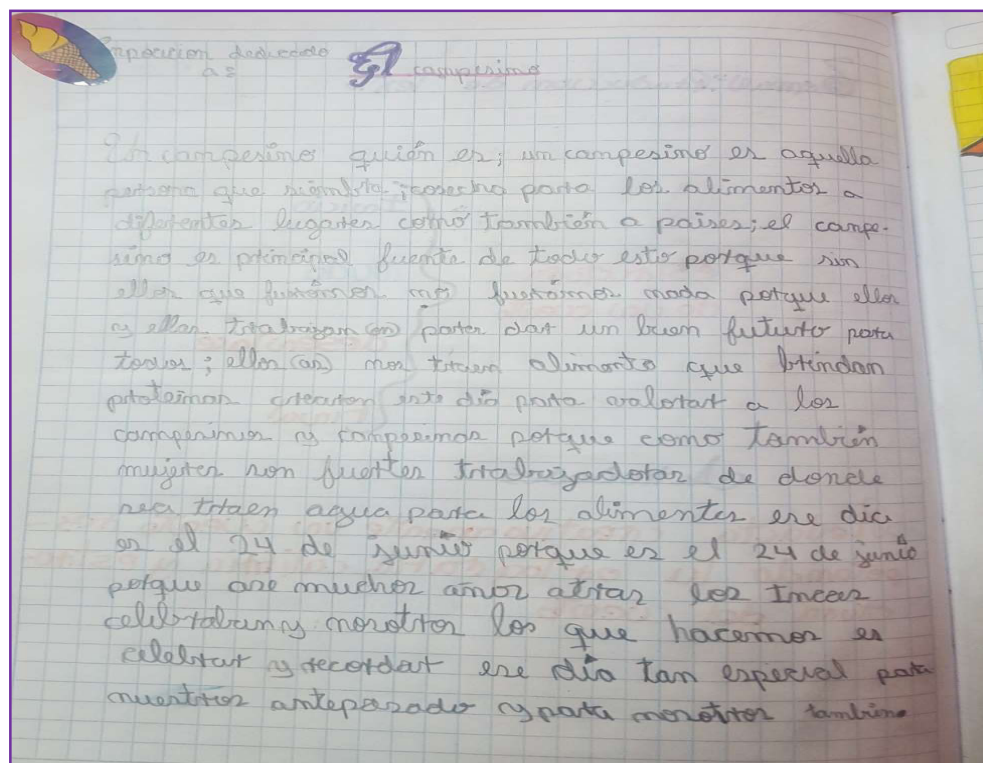 deducado El campesino
a:
Un campesino quién es; un campesino es aquella
persona que siembra; cosecha para los alimentos a
diferentes lugares como también a paises; el campe-
sino es principal fuente de todo esto porque sin
ellos que fuerámos no fuerámos nada porque ellos
y ellas trabajan (on) dar un buen futuro para
todos; ellos (as) nos traen alimento que brindan
proteinas crearon este día para valorar a los
campesinos y campesinas porque como también
mujeres son fuertes trabajadoras de donde
sea traen agua para los alimentos ese dia
es el 24 de junio porque es el 24 de junio
porque ase muchos años atras los Incas
celebraban y nosotros los que hacemos es
celebrar y recordar ese día tan especial para
nuestros antepasado y para nosotros